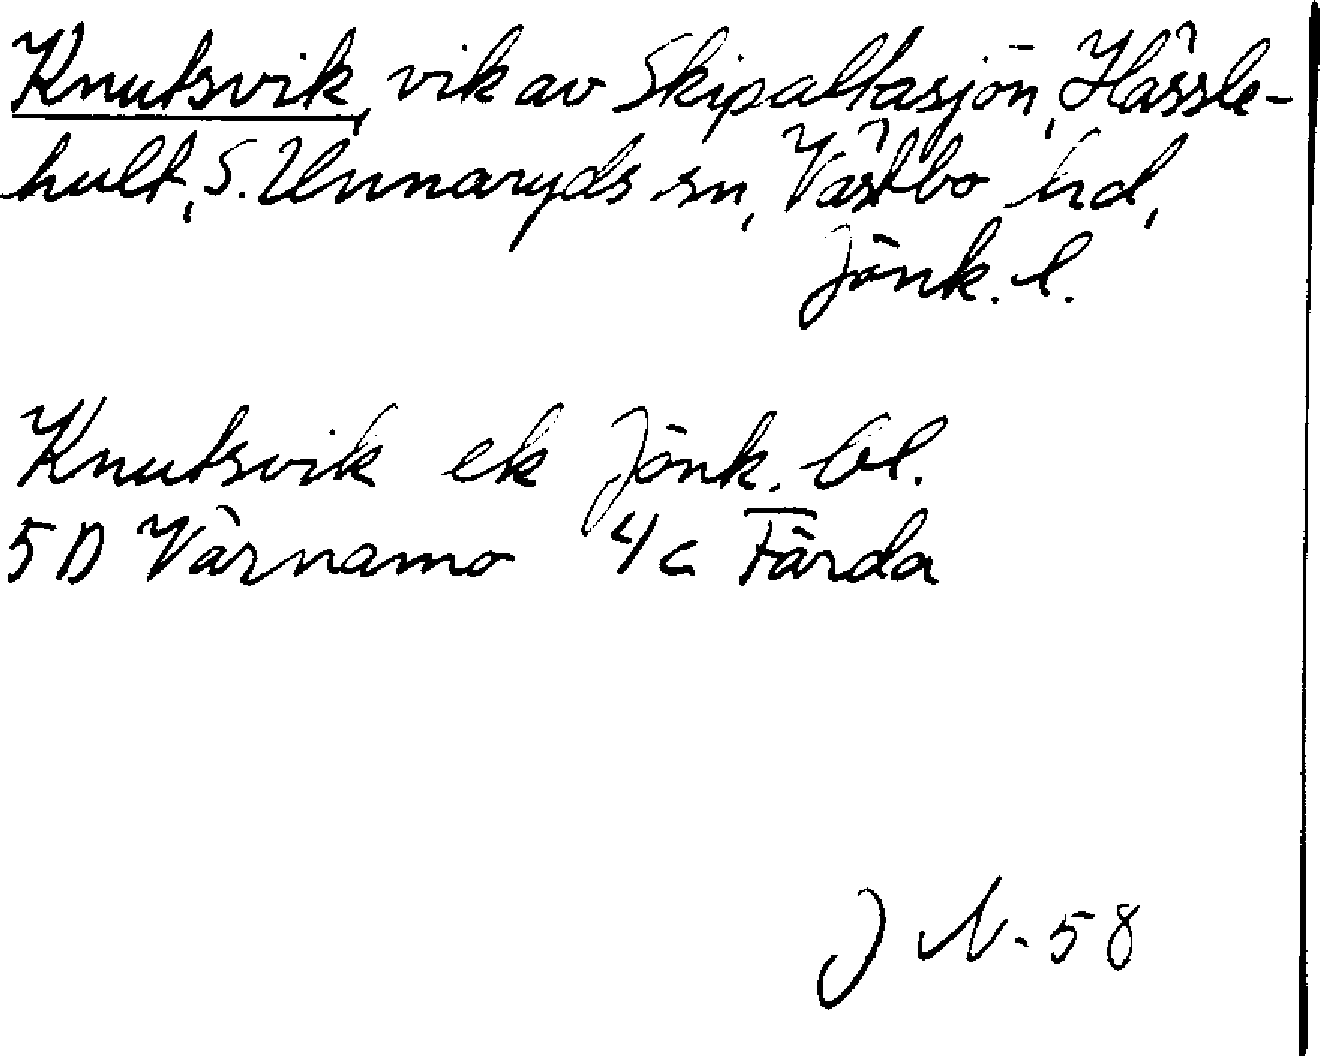 Knutsvik, vik av Skipaltasjön, Hässle-
hult, S. Unnaryds sn, Västbo hd,
Jönk. l.
Knutsvik ek Jönk. bl.
5D Värnamo 4c Färda
J N-58